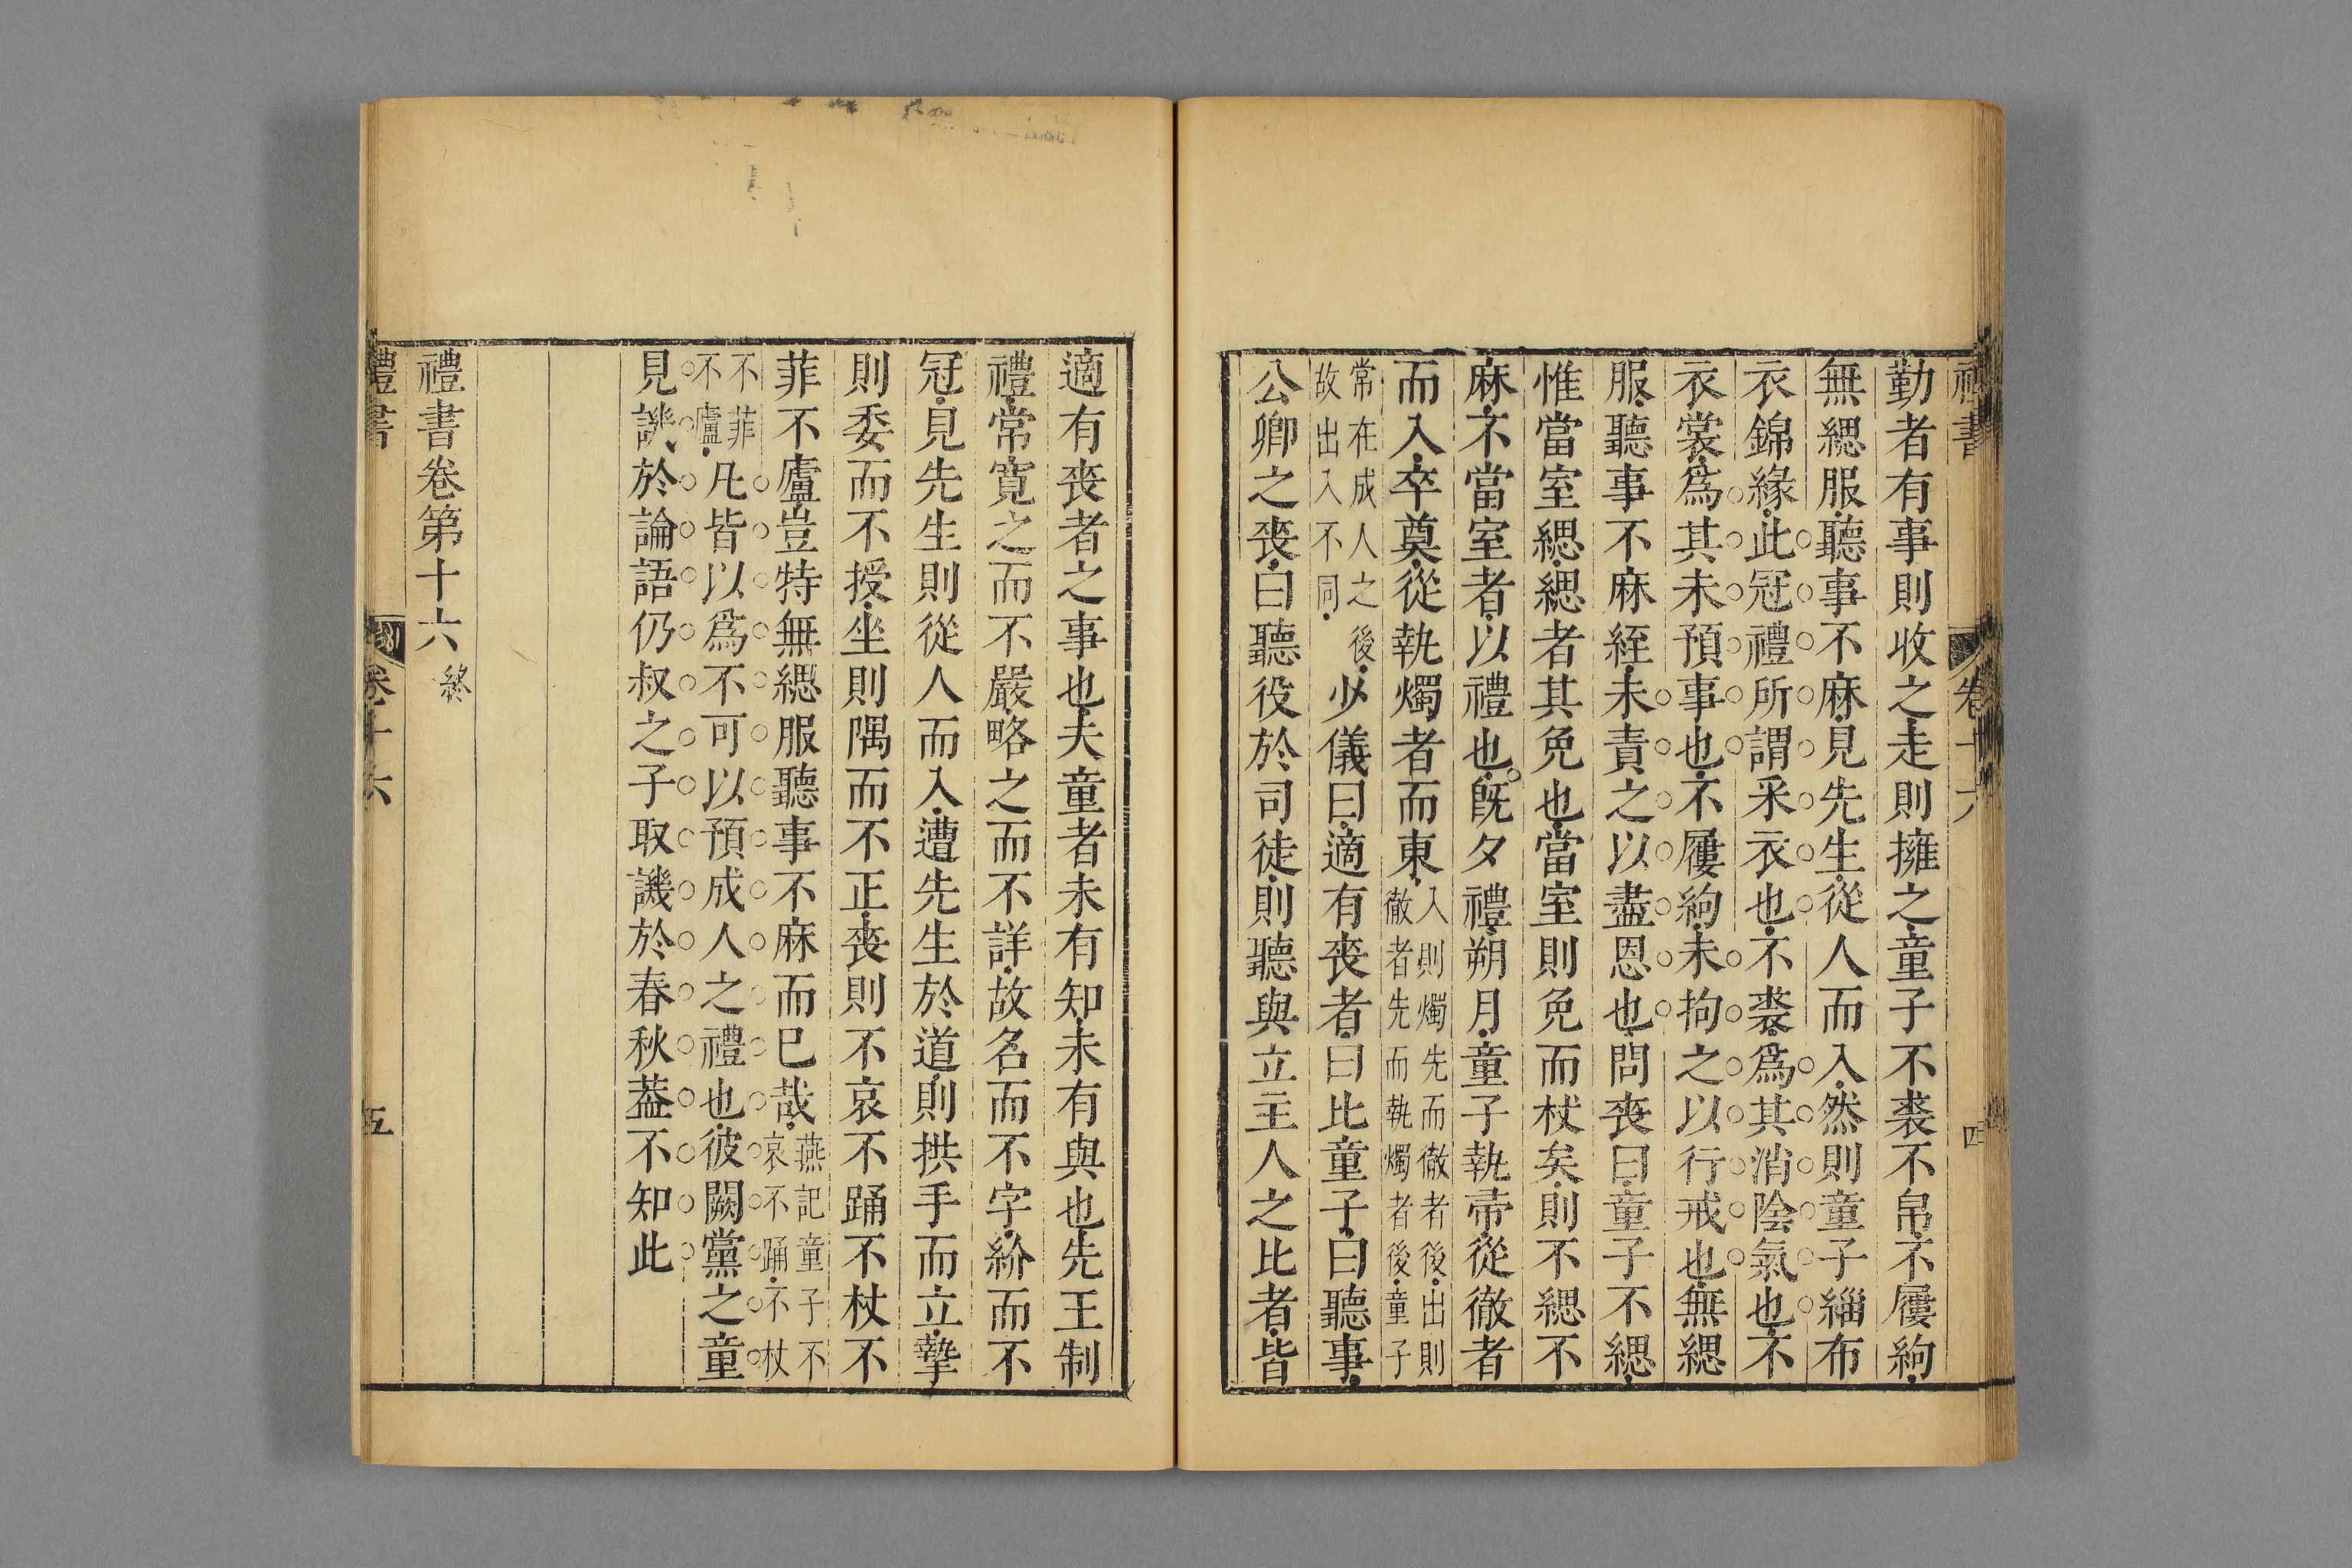 禮書 卷十六 四
勤者有事則收之走則擁之童子不裘不帛不屨絇
無緦服聽事不麻見先生從人而入然則童子緇布
衣錦緣此冠禮所謂采衣也不裘爲其消陰氣也不
衣裳爲其未預事也不屨絇未拘之以行戒也無緦
服聽事不麻絰未責之以盡恩也問喪曰童子不緦
惟當室緦緦者其免也當室則免而杖矣則不緦不
麻不當室者以禮也旣夕禮朔月童子執帚從徹者
而入卒奠從執燭者而東入則燭先而徹者後出則徹者先而執燭者後童子
常在成人之後故出入不同少儀曰適有喪者曰比童子曰聽事
公卿之喪曰聽役於司徒則聽與立主人之比者皆
適有喪者之事也夫童者未有知未有與也先王制
禮常寛之而不嚴略之而不詳故名而不字紒而不
冠見先生則從人而入遭先生於道則拱手而立摯
則委而不授坐則隅而不正喪則不哀不踊不杖不
菲不廬豈特無緦服聽事不麻而已哉燕記童子不哀不踊不杖
不菲不廬凡皆以爲不可以預成人之禮也彼闕黨之童
見譏於論語仍叔之子取譏於春秋葢不知此
禮書卷第十六終
禮書 卷十六 五